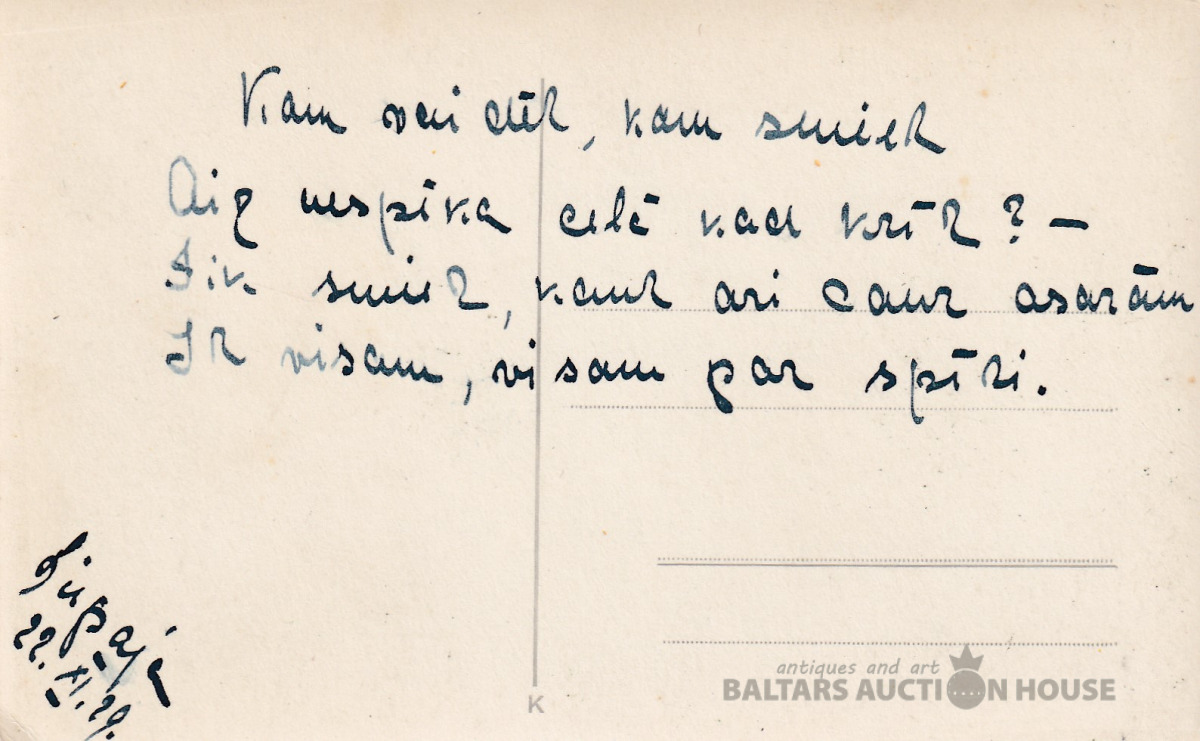 Kam vaidēt, kam smiet
Aiz nespēka ceļā kad krīt? —
Tik smiet, kaut ari caur asarām
It visam, visam par spīti.
Liepājā
22. XI. 29.
K
antiques and art
BALTARS AUCTION HOUSE